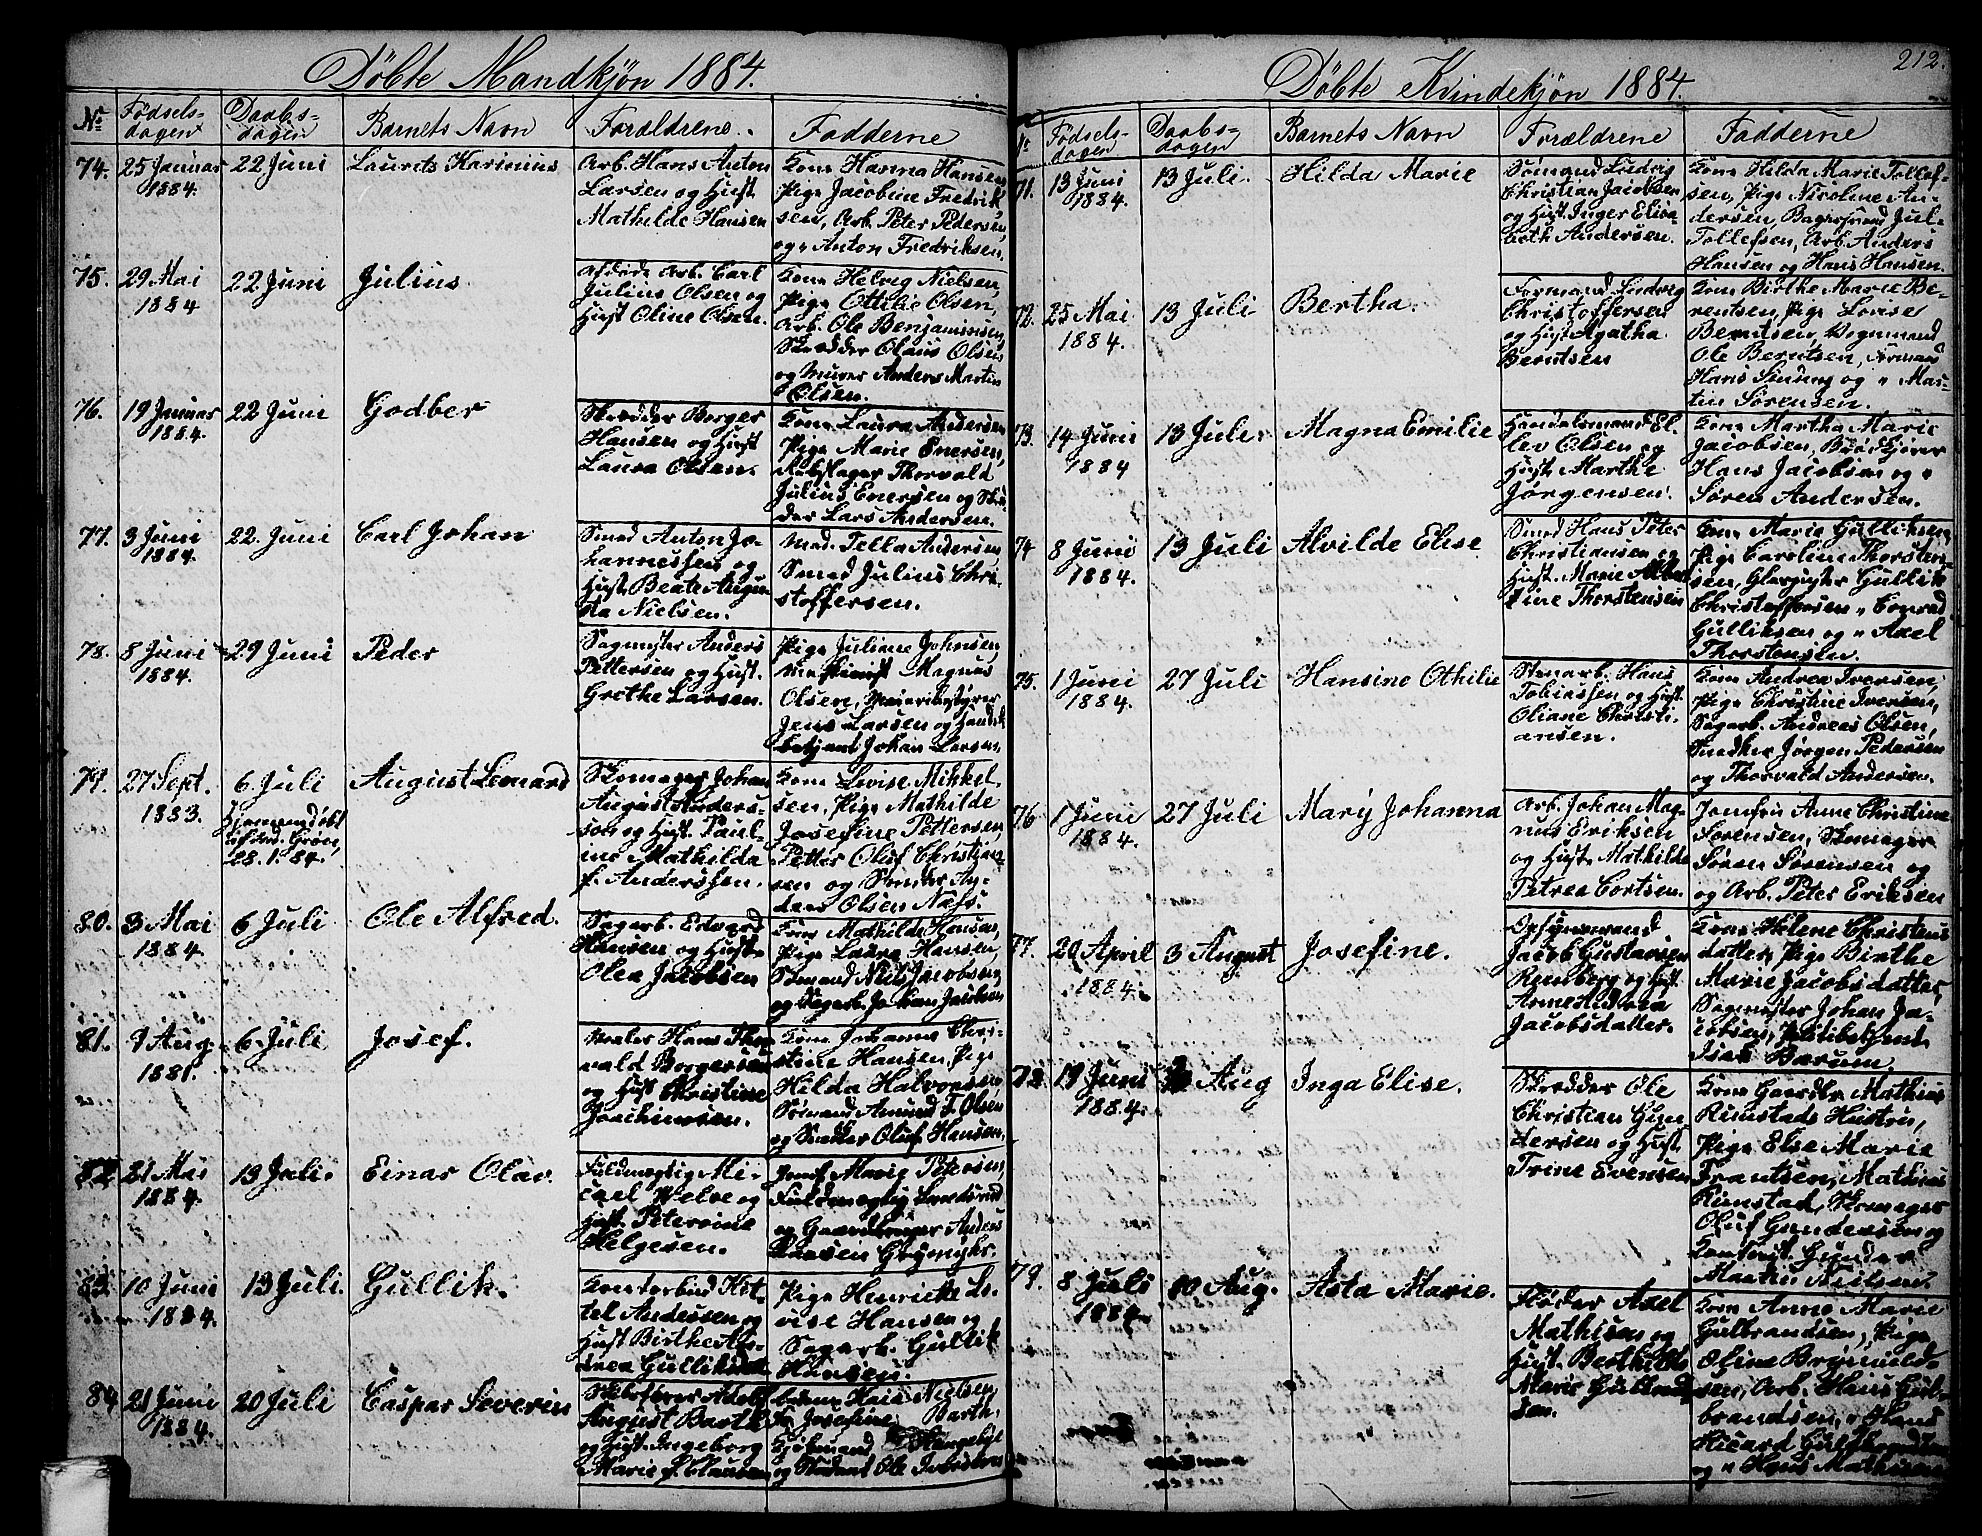 Döbte Mandkjön 1884.
No
Födsels-
dagen
Daabs-
dagen
Barnets Navn
Forældrene.
Fadderne
74.
25 Januar
1884.
22 Juni
Laurets Karinius
Arb. Hans Anton
Larsen og Hust.
Mathilde Hansen
Kone Hanna Hansen
Pige Jacobine Fredrik-
sen, Arb. Peter Pedersen,
og " Anton Fredriksen.
75.
29 Mai
1884
22 Juni
Julius.
Afdöde Arb. Carl
Julius Olsen og
Hust. Oline Olsen.
Kone Helvig Nielsen,
Pige Ottilie Olsen,
Arb. Ole Benjaminsen,
Skrædder Olaus Olsen
og Murer Anders Martin
Olsen.
76.
19 Januar
1884.
22 Juni
Godber
Skrædder Borger
Hansen og Hust.
Laura Olsen.
Kone Laura Andersen
Pige Marie Enersen,
Rebslager Thorvald
Julius Enersen og Skræ-
der Lars Andersen.
77.
3 Juni
1884.
22. Juni
Carl Johan
Smed Anton Jo-
hannessen og
Hust. Beate Augus-
ta Nielsen.
Mad. Tella Andersen
Smed Julius Chri-
stoffersen.
78.
8 Juni
1884.
29 Juni
Peder
Sagmester Anders
Pettersen og Hust.
Grethe Larsen.
Pige Juliane Johnsen,
Maskinist Magnus
Olsen, Meieribestyrer
Jens Larsen og Handels-
betjent Johan Larsen.
79.
27 Sept.
1883.
6 Juli
Hjemmedöbt
af Grön,
28.1.84.
August Leonard
Skomager Johan
August Anders-
son og Hust. Paul-
ine Mathilda
f. Anderssen.
Kone Lovise Mikkel-
sen, Pige Mathilde
Josefine Pettersen
Petter Oluf Christian-
sen og Snedker An-
ders Olsen Næss.
80.
3 Mai
1884.
6 Juli
Ole Alfred.
Sagarb. Edvard
Hansen og Hust.
Olea Jacobsen
Fru Mathilde Hansen,
Pige Laura Hansen,
Sömand Nils Jacobsen,
og Sagarb. Johan Jacobsen
81.
9 Aug.
1881.
6 Juli
Josef.
Maler Hans Thor-
vald Borgersen
og Hust Christine
Joachimsen.
Kone Johanne Chri-
stine Hansen, Pige
Hilda Halvorsen
Sömand Amund F. Olsen
og Snedker Oluf Hansen.
82
21 Mai
1884.
13 Juli.
Einar Olav.
Fuldmægtig Mi-
cael Welve og
Hust. Petersine
Helgesen.
Jomf Marie Petersen
Fuldmægtig
og Gaardbruger Anders
83.
10 Juni
1884.
13 Juli.
Gullik.
Kontorbud Ket-
tel Andersen og
Hust Birthe An-
drea Gulliksen
Pige Henriette Lo-
vise Hansen og
Sagarb. Gullik
Hansen.
84
21 Juni
1884.
20 Juli
Caspar Severin
Skibsförer Adolf
August Barth
og Hust. Ingeborg
Marie f. Clausen
Nielsen,
Josefine Barth.
og Student Ole Iversen
212.
Döbte Kvindekjön 1884.
No
Födsels-
dagen
Daabs-
dagen
Barnets Navn
Forældrene
Fadderne
71.
13 Juni
1884.
13 Juli.
Hilda Marie
Sömand Ludvig
Christian Jacobsen
og Hust. Inger Elisa-
beth Andersen.
Kone Hilda Marie Tollef-
sen, Pige Nicoline An-
dersen, Bagersvend Jul.
Tollefsen, Arb. Anders
Hansen og Hans Hansen.
72.
25 Mai
1884.
13 Juli
Bertha.
Formand Ludvig
Christoffersen
og Hust Agatha
Berntsen
Kone Birthe Marie Be-
rentsen, Pige Lovise
Berntsen, Vognmand
Ole Berntsen, Formand
Hans Sending og " Mar-
tin Sörensen.
73.
14 Juni
1884
13 Juli.
Magna Emilie
Handelsmand El-
lev Olsen og
Hust. Marthe
Jörgensen.
Kone Martha Marie
Jacobsen, Brödkjörer
Hans Jacobsen og "
Sören Andersen.
74
8 Juni
1884.
13 Juli
Alvilde Elise
Smed Hans Peter
Christiansen og
Hust. Marie Alber-
tine Thorstensen
Kone Marie Gulliksen,
Pige Caroline Thorsten-
sen, Glarmester Gullik
Christoffersen " Conrad
Gulliksen og " Axel
Thorstensen.
75.
1 Juni
1884.
27 Juli
Hansine Othilie
Stenarb. Hans
Tobiassen og Hust.
Oliane Christi-
ansen.
Kone Andrea Iversen,
Pige Christine Iversen,
Sagarb. Andreas Olsen,
Snedker Jörgen Pedersen
og Thorvald Andersen.
76
1 Juni
1884.
27 Juli
Mary Johanna
Arb. Johan Mag-
nus Eriksen
og Hust. Mathilde
Petrea Cortsen.
Jomfru Anne Christine
Sörensen, Skomager
Sören Sörensen og
og Arb. Peter Eriksen
77.
20 April
1884.
3 August
Josefine.
Opsynsmand
Jacob Gustavsen
Remberg og Hust.
Anne Andrea
Jacobsdatter.
Kone Helene Christens-
datter, Pige Birthe
Marie Jacobsdatter,
Sagmester Johan Ja-
cobsen, Politibetjent
Isak Barum.
78.
19 Juni
1884.
Aug
Inga Elise.
Skrædder Ole
Christian Gun-
dersen og Hust.
Trine Evensen
Kone Gaardbr. Mathias
Rimstads Hustru,
Pige Else Marie
Frantsen, Mathias
Rimstad, Skomager
Oluf Gundersen og
Kontorist. Gunder
Martin Nielsen.
79.
8 Juli
1884.
10 Aug.
Asta Marie.
Flöder Axel
Mathisen og
Hust. Berthilde
Marie Gulbrand-
sen.
Kone Anne Marie
Gulbrandsen, Pige
Oline Brynnild-
sen, Arb. Hans Gul-
brandsen, " Hans
Ricard Gulbrandsen
og " Hans Mathisen